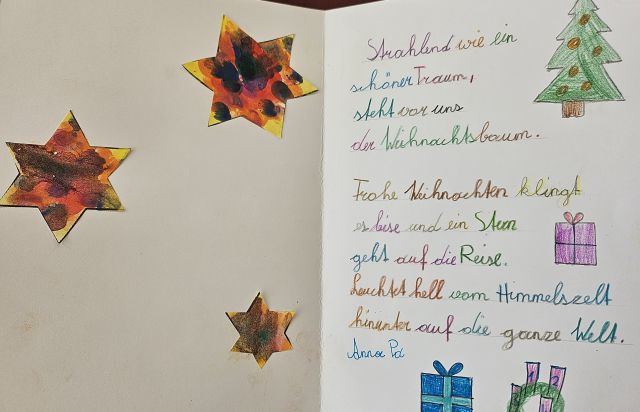 Strahlend wie ein
schöner Traum,
steht vor uns
der Weihnachtsbaum.
Frohe Weihnachten klingt
es leise und ein Stern
geht auf die Reise.
Leuchtet hell vom Himmelszelt
hinunter auf die ganze Welt.
Anna
1 2